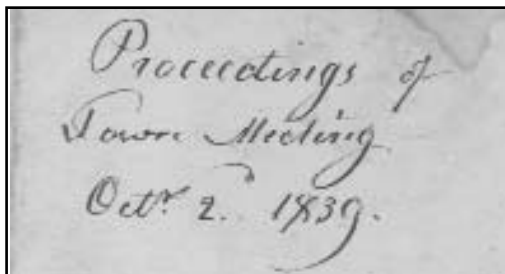 Proceedings of
Town Meeting
Octr. 2d. 1839.